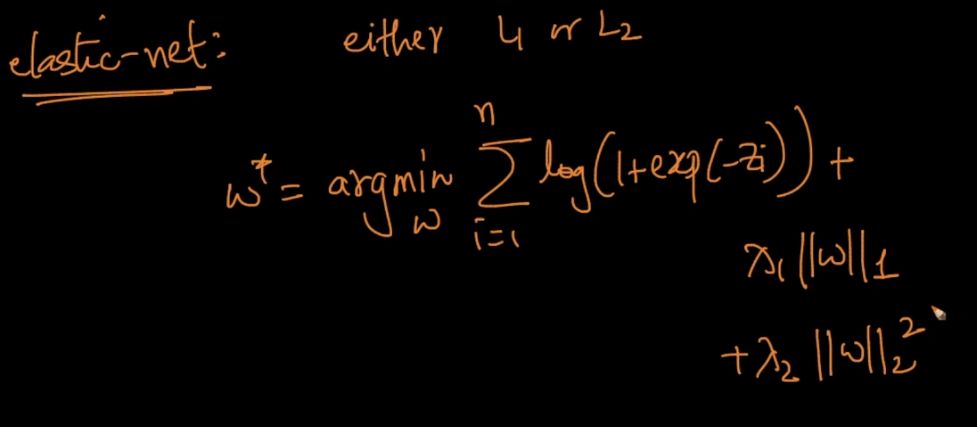 elastic-net: either L1 or L2
w* = argmin_w ∑_{i=1}^{n} log(1+exp(-zi)) +
λ1 ||w||1
+ λ2 ||w||2^2